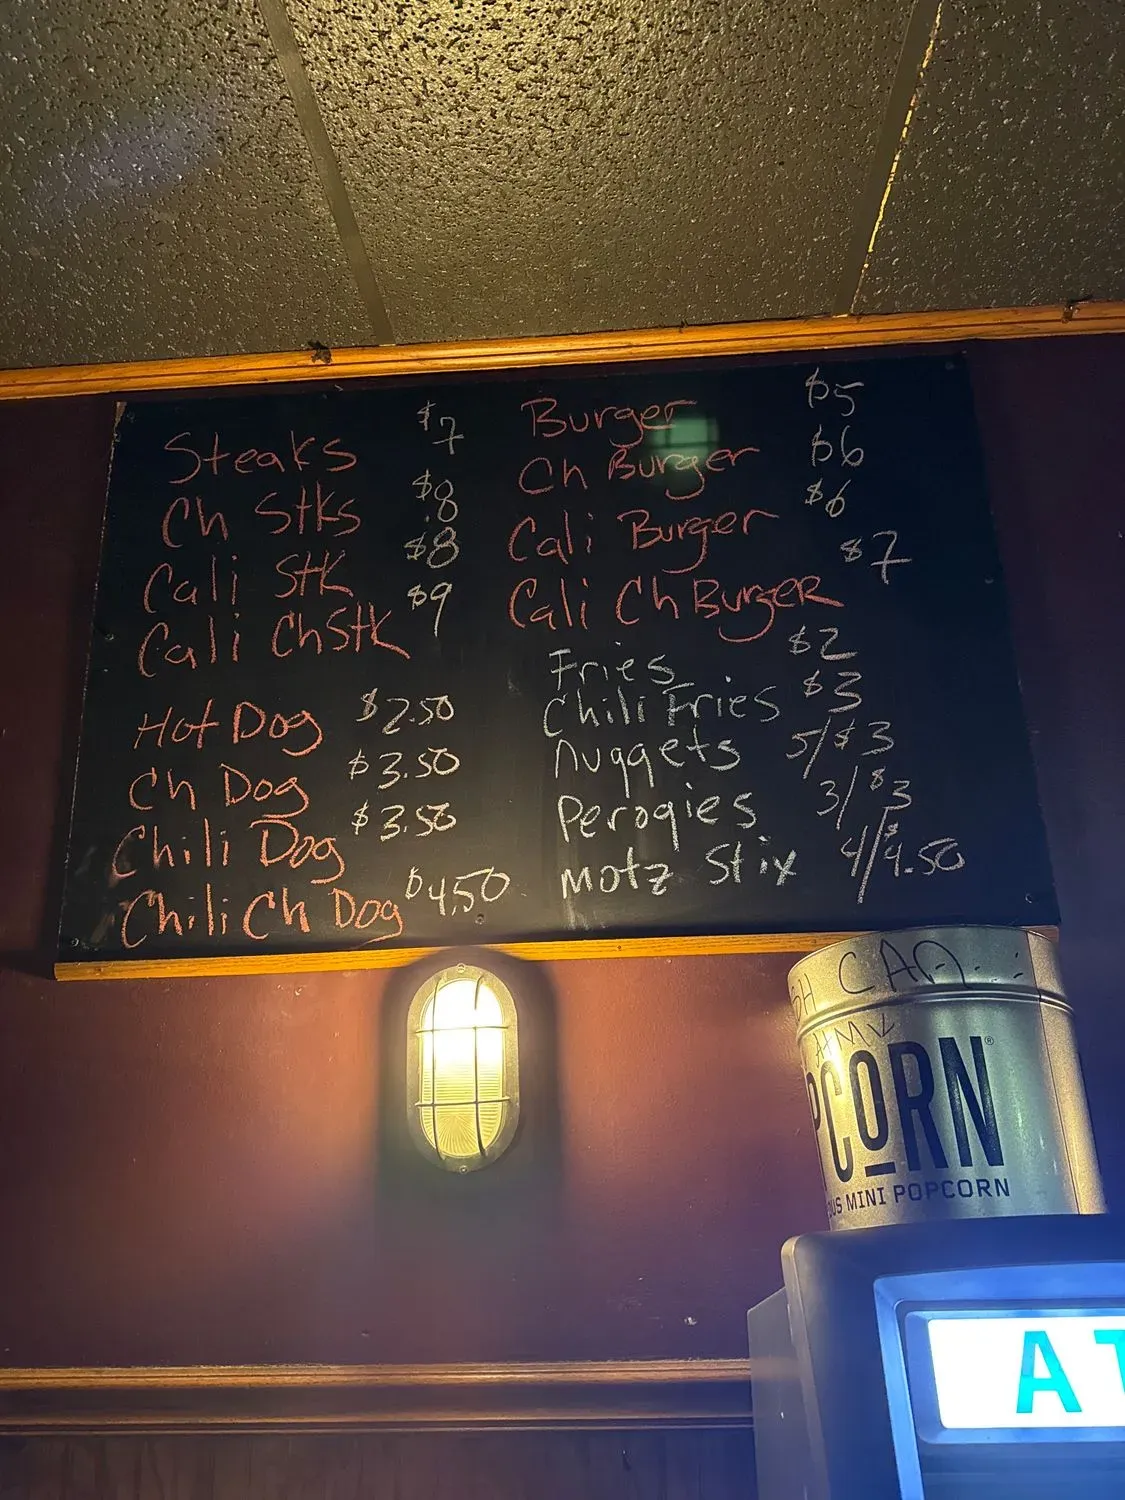 Steaks $7
Ch Stks $8
Cali Stk $8
Cali ChStk $9
Hot Dog $2.50
Ch Dog $3.50
Chili Dog $3.50
Chili Ch Dog $4.50
Burger $5
Ch Burger $6
Cali Burger $6
Cali Ch Burger $7
Fries $2
Chili Fries $3
Nuggets 5/$3
Perogies 3/$3
Motz Stix 4/$4.50
PCORN®
MINI POPCORN
AT